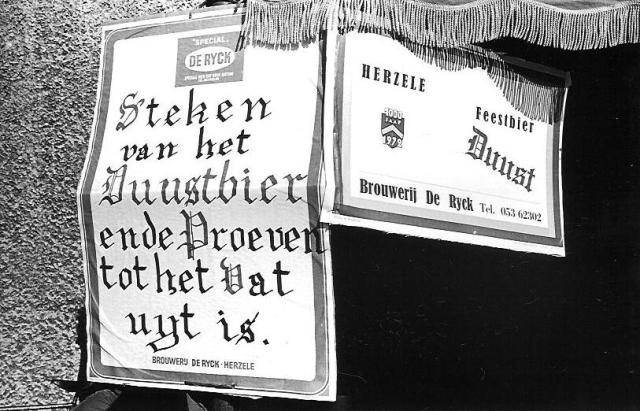 "SPECIAL"
DE RYCK
Steken
van het
Duustbier
ende Proeven
tot het Vat
uyt is.
BROUWERIJ DE RYCK - HERZELE
HERZELE
Feestbier
Duust
Brouwerij De Ryck Tel. 053 62302